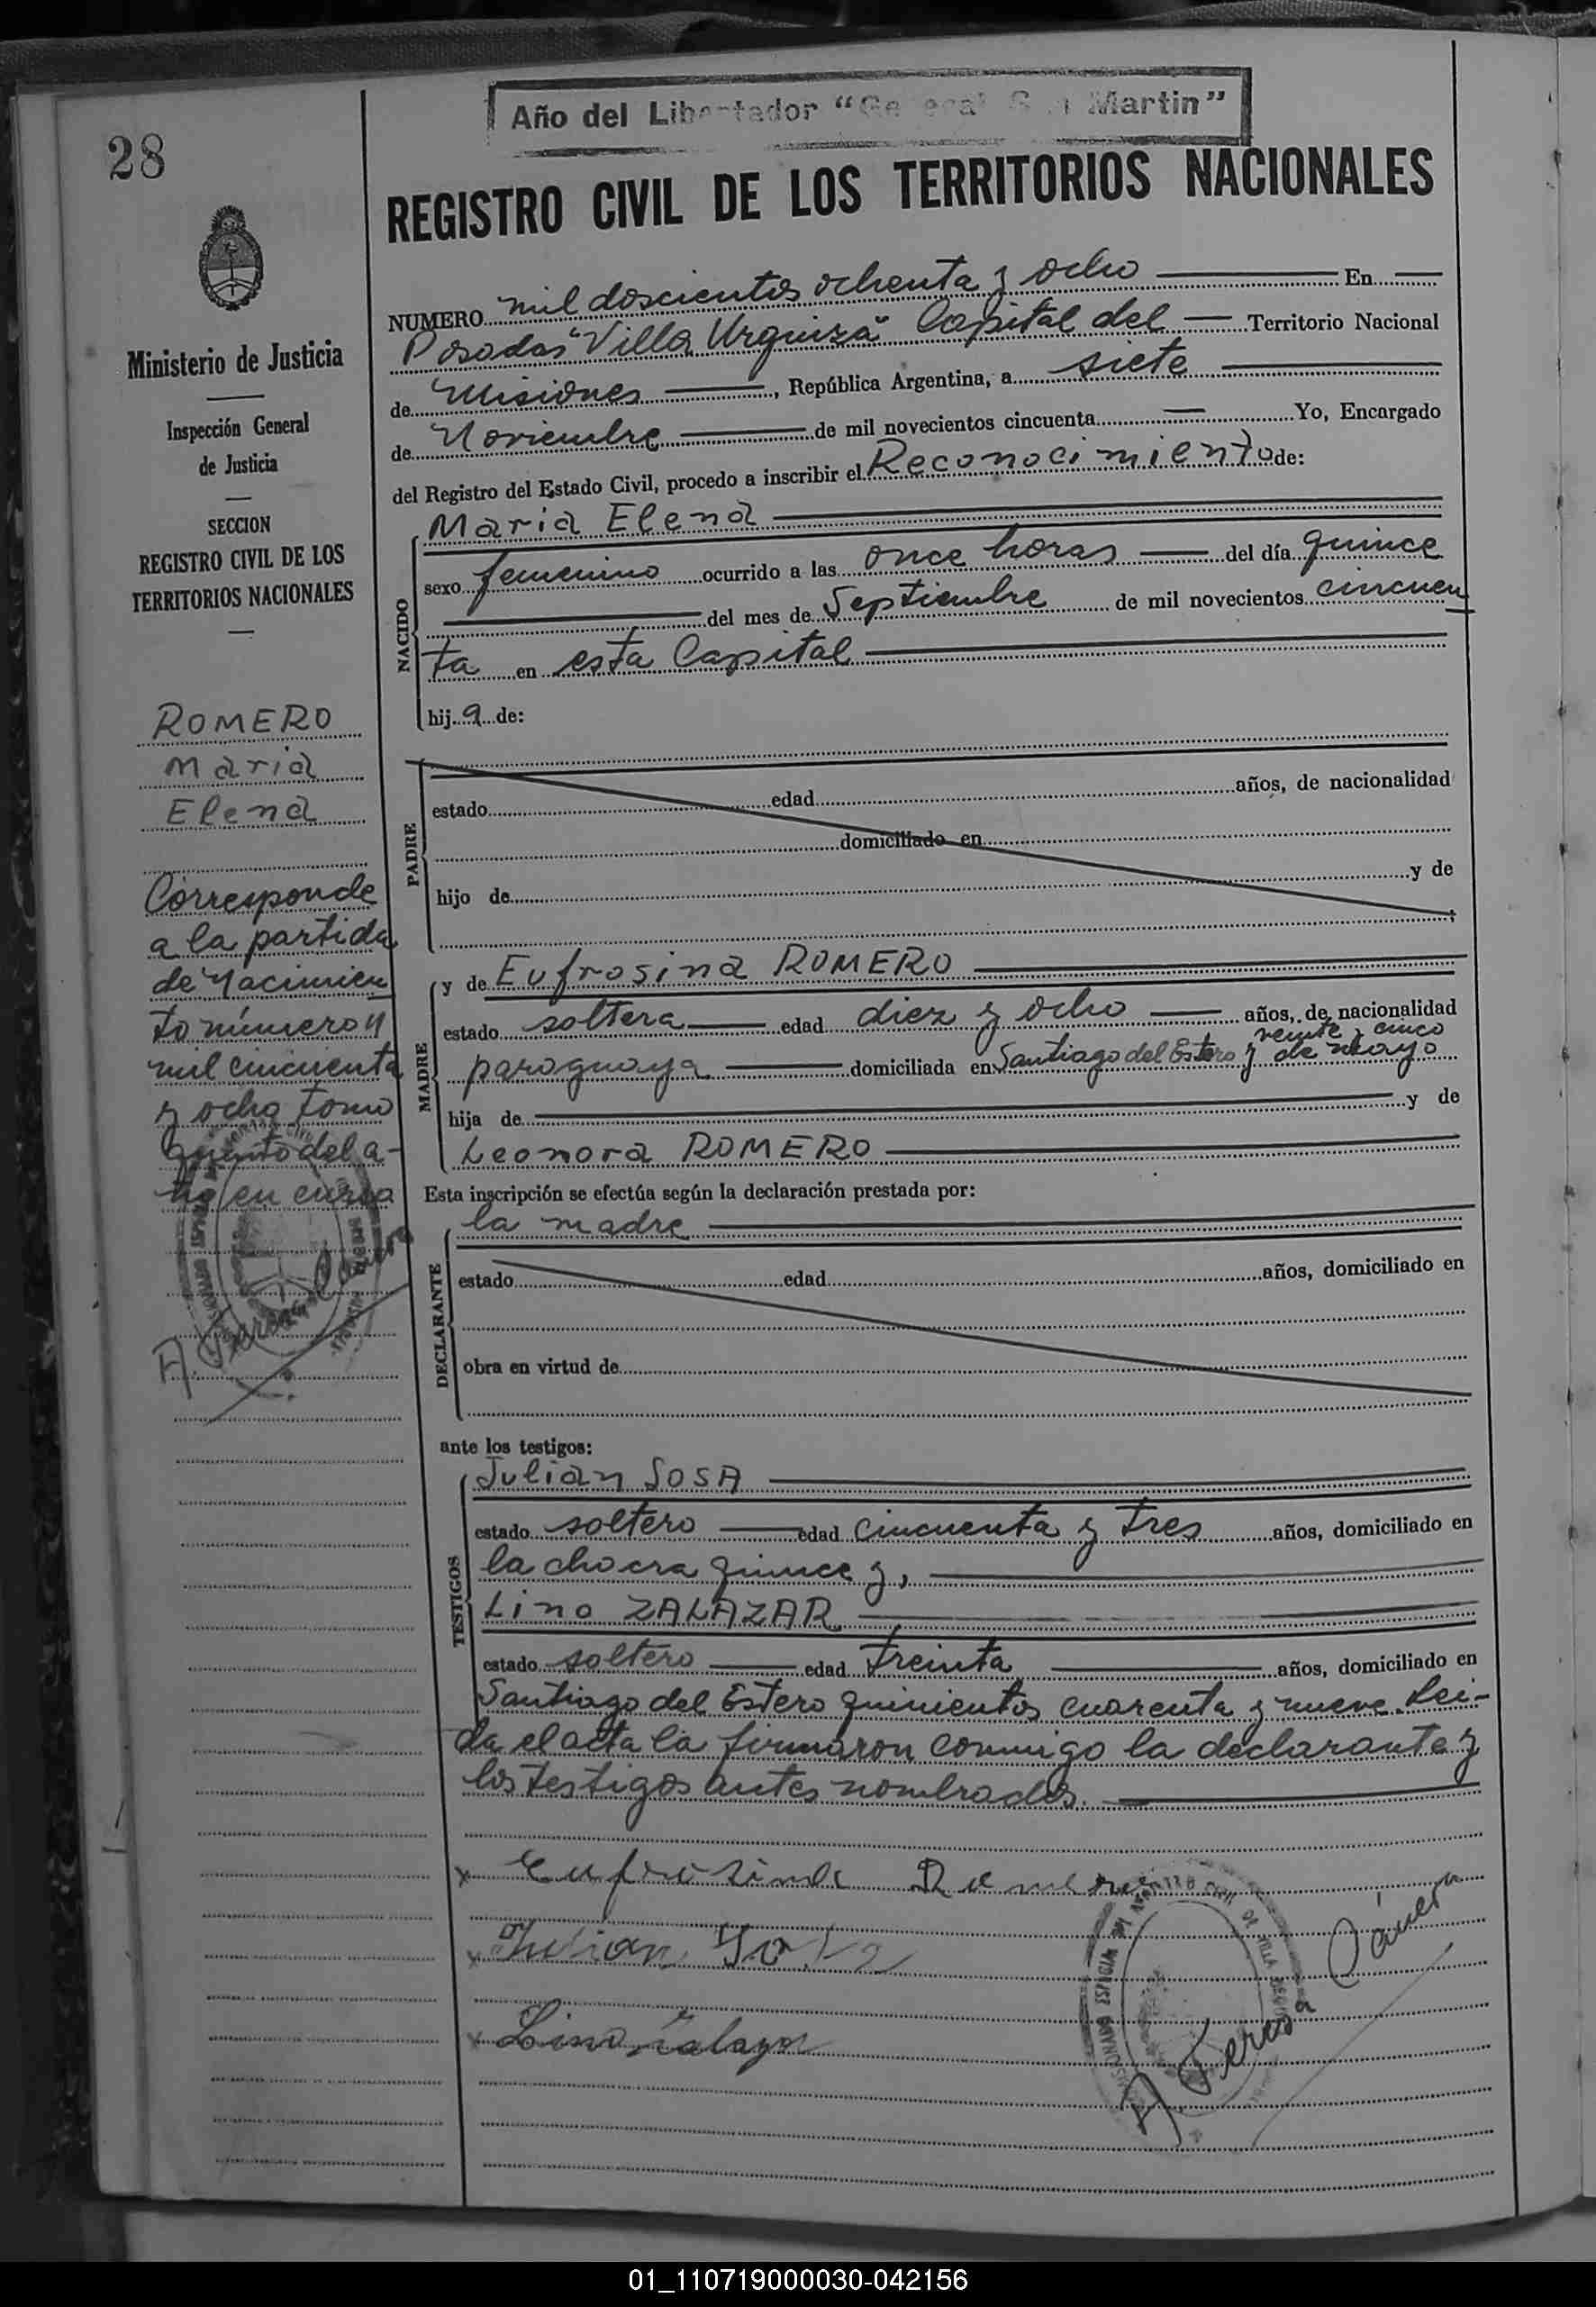 Año del Libertador "General San Martin"
28
REGISTRO CIVIL DE LOS TERRITORIOS NACIONALES
Ministerio de Justicia
Inspección General
de Justicia
SECCION
REGISTRO CIVIL DE LOS
TERRITORIOS NACIONALES
ROMERO
Maria
Elena
Corresponde
a la partida
de Nacimien
to número
mil cincuenta
y ocho tomo
quinto del a-
ño en curso
A. Teresa Cámera
NUMERO mil doscientos ochenta y ocho En
Posadas "Villa Urquiza" Capital del Territorio Nacional
de Misiones, República Argentina, a siete
de Noviembre de mil novecientos cincuenta Yo, Encargado
del Registro del Estado Civil, procedo a inscribir el Reconocimiento de:
NACIDO
Maria Elena
sexo femenino ocurrido a las once horas del día quince
del mes de Septiembre de mil novecientos cincuen
ta en esta Capital
hij a de:
PADRE
estado edad años, de nacionalidad
domiciliado en
hijo de y de
MADRE
y de Eufrosina ROMERO
estado soltera edad diez y ocho años, de nacionalidad
paraguaya domiciliada en Santiago del Estero y veinte y cinco de Mayo
hija de y de
Leonora ROMERO
Esta inscripción se efectúa según la declaración prestada por:
DECLARANTE
la madre
estado edad años, domiciliado en
obra en virtud de
ante los testigos:
TESTIGOS
Julian SOSA
estado soltero edad cincuenta y tres años, domiciliado en
la chacra quince y,
Lino ZALAZAR
estado soltero edad treinta años, domiciliado en
Santiago del Estero quinientos cuarenta y nueve. Lei-
da el acta la firmaron conmigo la declarante y
los testigos antes nombrados.
x Eufrosina Romero
x Julian Sosa
x Lino Zalazar
A. Teresa Cámera
01_110719000030-042156